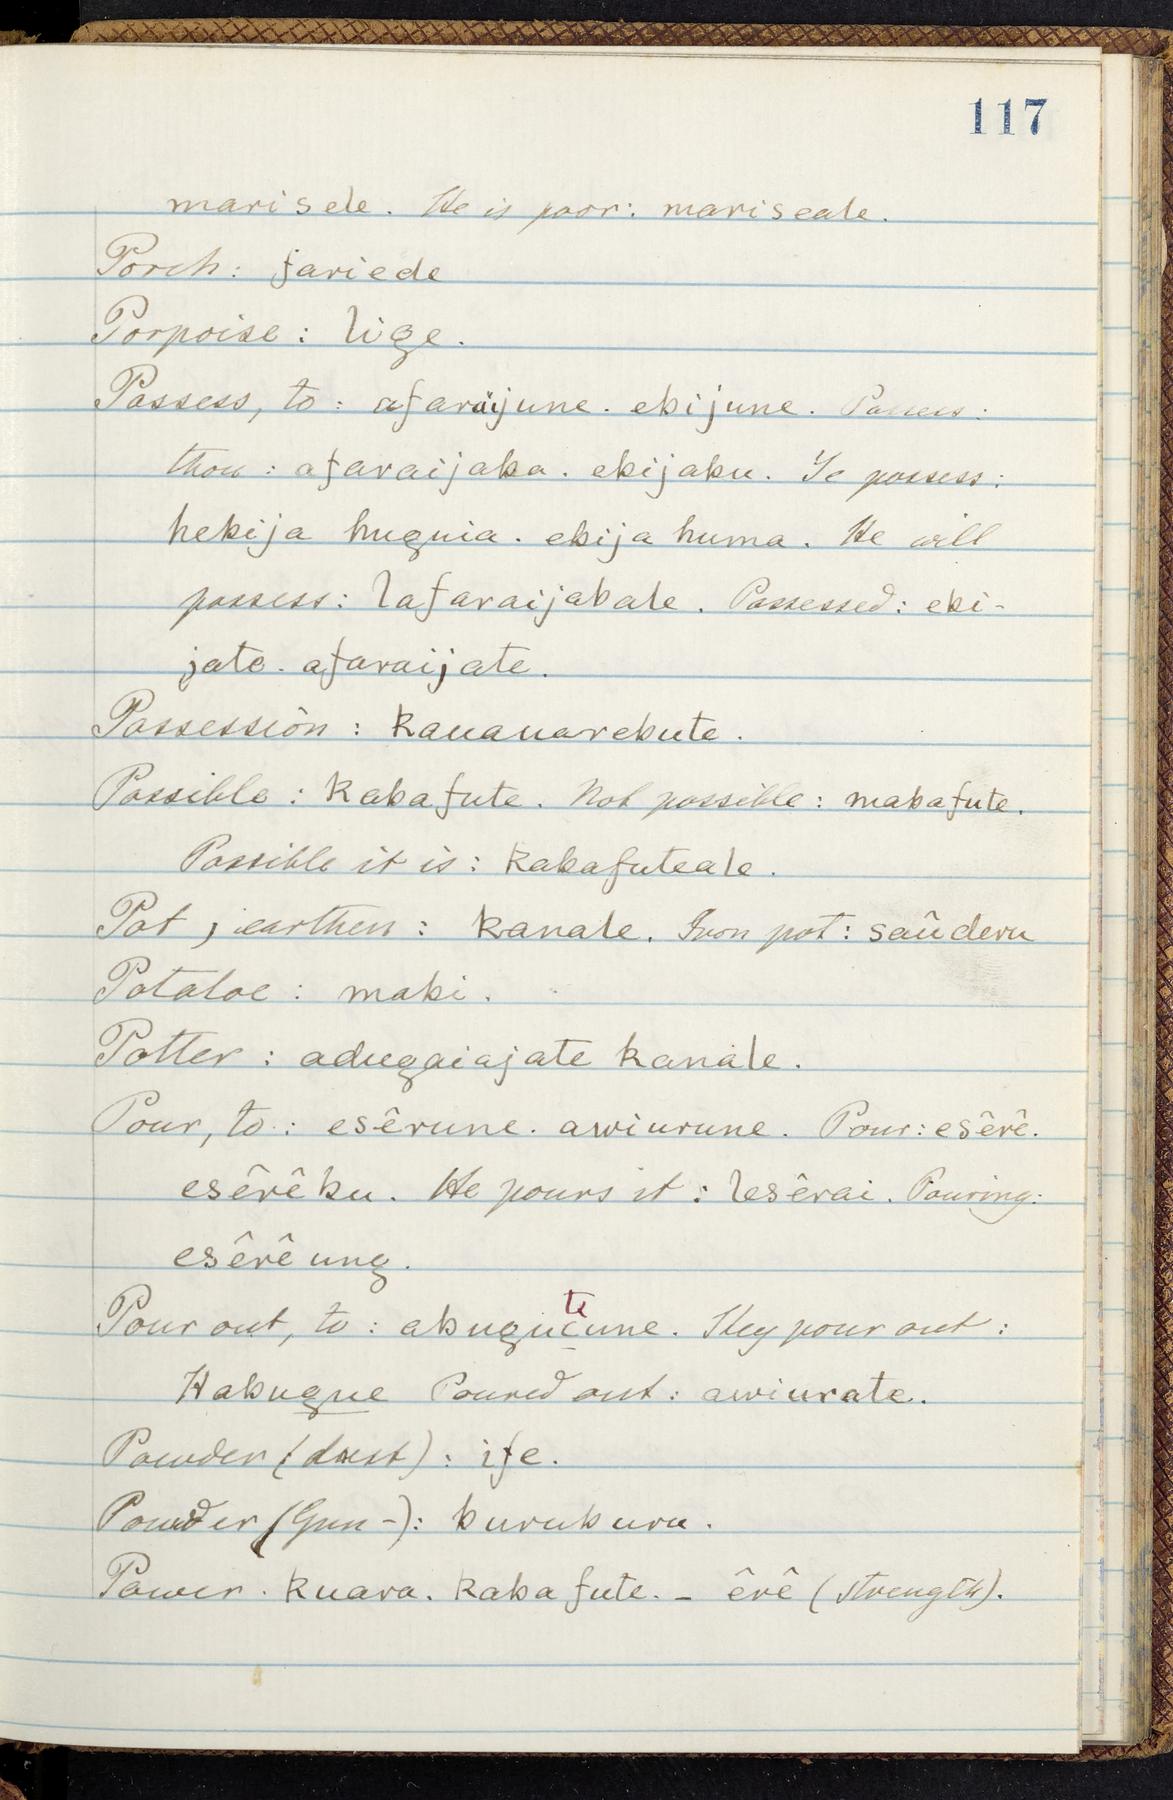 117
marisele. He is poor: mariseale.
Porch: fariede
Porpoise: lige.
Possess, to: afaraijune. ekijune. Possess:
thou: afaraijaka. ekijaku. Ye possess:
hekija huguia. ekija huma. He will
possess: lafaraijabale. Possessed: eki-
jate. afaraijate.
Possession: kauauarekute.
Possible: kabafute. Not possible: mabafute.
Possible it is: kabafuteale.
Pot, earthen: kanale. Iron pot: saûderu
Potatoe: maki.
Potter: adugaiajate kanale.
Pour, to: esêrune. awiurune. Pour: esêrê.
esêrêku. He pours it: lesêrai. Pouring:
esêrê ung.
te
Pour out, to: akugucune. They pour out:
Hakugue Poured out: awiurate.
Powder (dust): ife.
Powder (Gun-): kurukuru.
Power. kuara. kabafute. - êrê (strength).